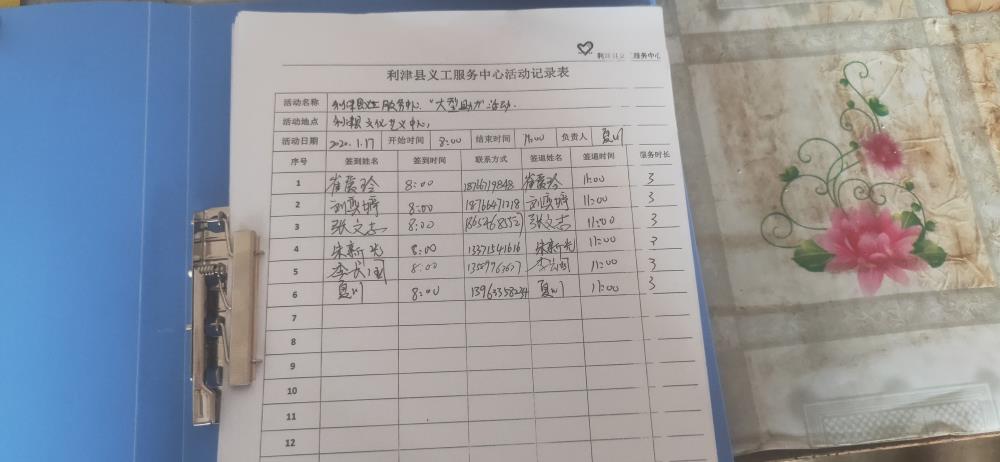 服务中心
利津县义工服务中心活动记录表
活动名称 利津县义工服务中心"大型助力"活动.
活动地点 利津县文化艺术中心,
活动日期 2020.1.17 开始时间 8:00 结束时间 11:00 负责人 夏川
序号 签到姓名 签到时间 联系方式 签退姓名 签退时间 服务时长
1 崔爱玲 8:00 18766719848 崔爱玲 11:00 3
2 8:00 18766471718 11:00 3
3 张文志 8:00 张文志 11:00 3
4 朱新光 8:00 13371541616 朱新光 11:00 3
5 8:00 11:00 3
6 夏川 8:00 夏川 11:00 3
7
8
9
10
11
12